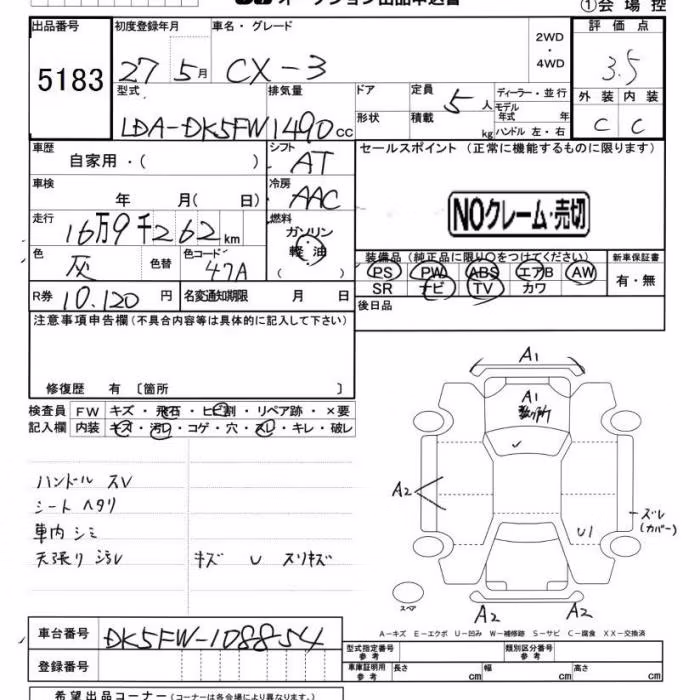 ①会場控
出品番号 初度登録年月 車名・グレード 2WD・4WD 評価点
5183 27年 5月 CX-3 3.5
型式 排気量 ドア 定員 5人 ディーラー・並行 外装 内装
モデル年式 年
LDA-DK5FW 1490cc 形状 積載 kg ハンドル 左・右 C C
車歴 シフト セールスポイント (正常に機能するものに限ります)
自家用・( ) AT
車検 冷房
年 月(日) AAC NOクレーム・売切
走行 燃料
16万9千262km ガソリン
色 色替 色コード 軽・油 装備品 (純正品に限り○をつけてください) 新車保証書
灰 47A ( ) PS PW ABS エアB AW 有・無
R券 10,120円 名変通知期限 月 日 SR ナビ TV カワ
注意事項申告欄 (不具合内容等は具体的に記入して下さい) 後日品
修復歴 有 〔箇所 〕
検査員 FW キズ・飛石・ヒビ割・リペア跡・×要
記入欄 内装 キズ・汚レ・コゲ・穴・スレ・キレ・破レ
ハンドル スレ
シート ヘタリ
車内 シミ
天張り 汚レ キズ U スリキズ
A1
A1
数ヶ所
A2
ズレ
(カバー)
U1
スペア
A2 A2
A-キズ E-エクボ U-凹み W-補修跡 S-サビ C-腐食 XX-交換済
車台番号 DK5FW-108854
型式指定番号 参考 類別区分番号 参考
登録番号 車庫証明用 参考 長さ cm 幅 cm 高さ cm
希望出品コーナー (コーナーは各会場により異なります。)